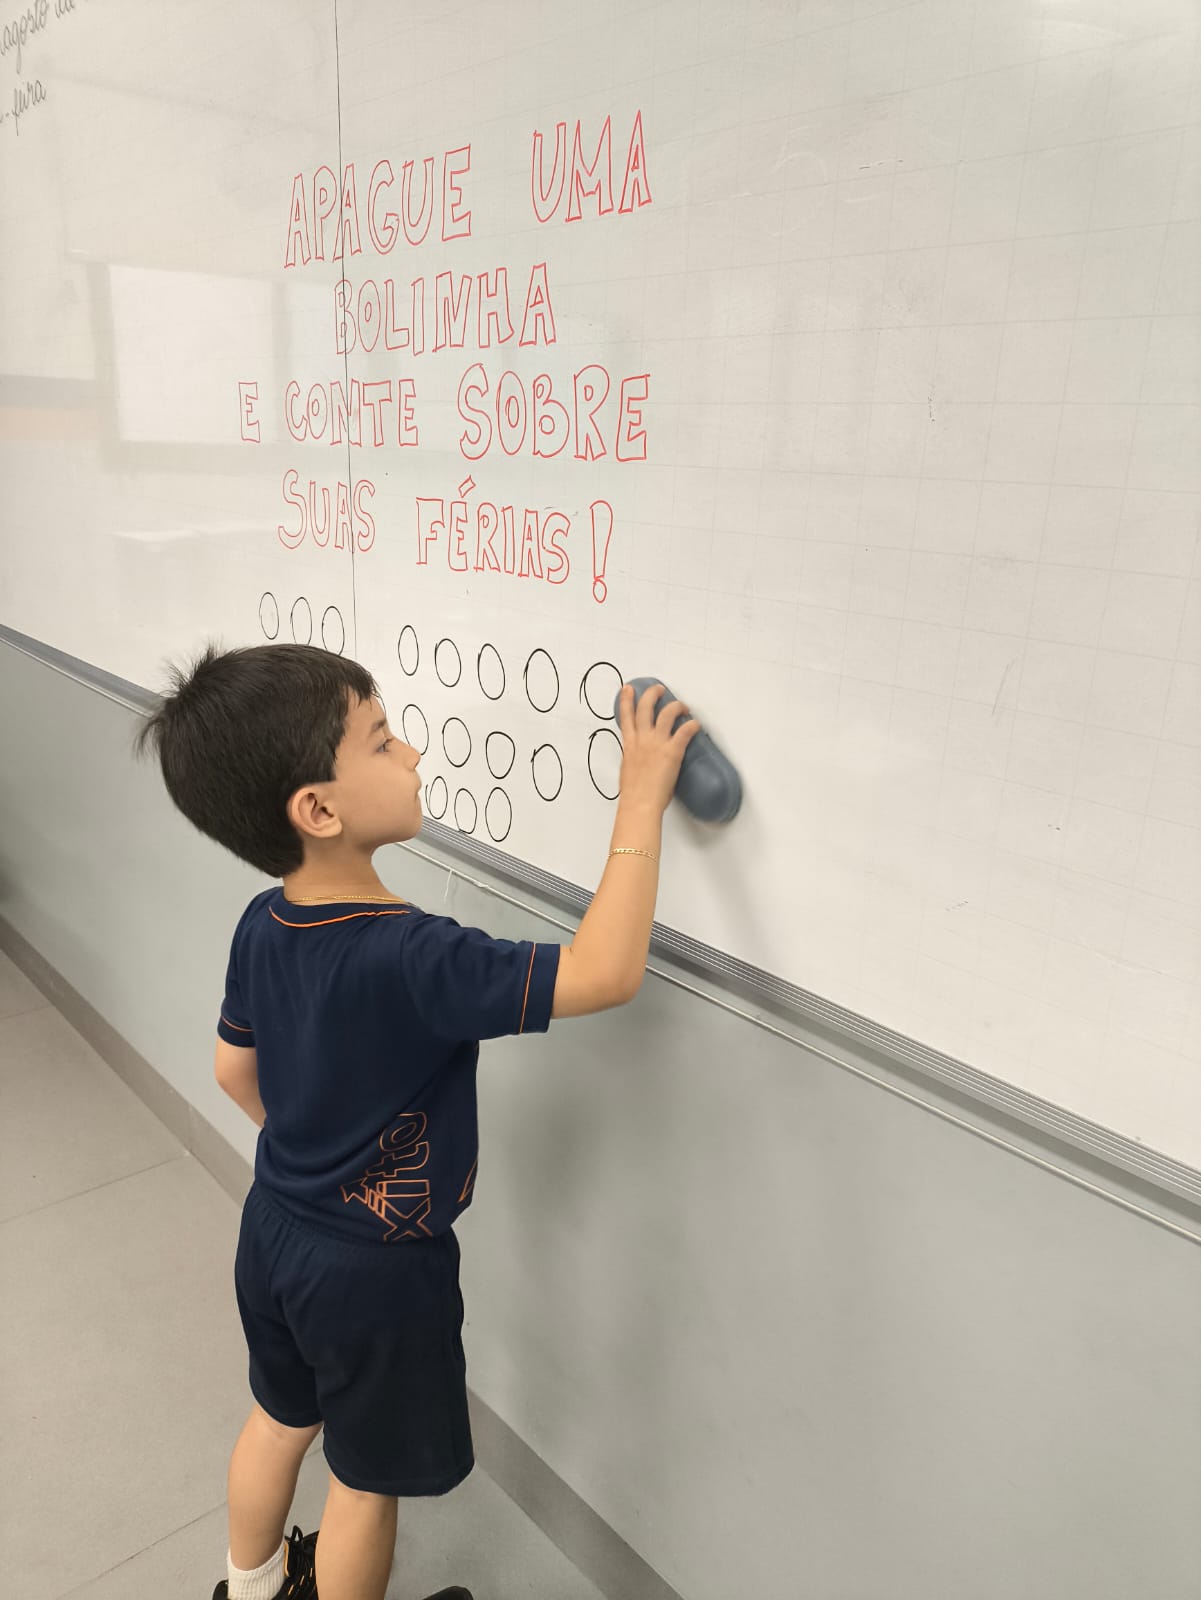 agosto
-feira
APAGUE UMA
BOLINHA
E CONTE SOBRE
SUAS FÉRIAS!
xito